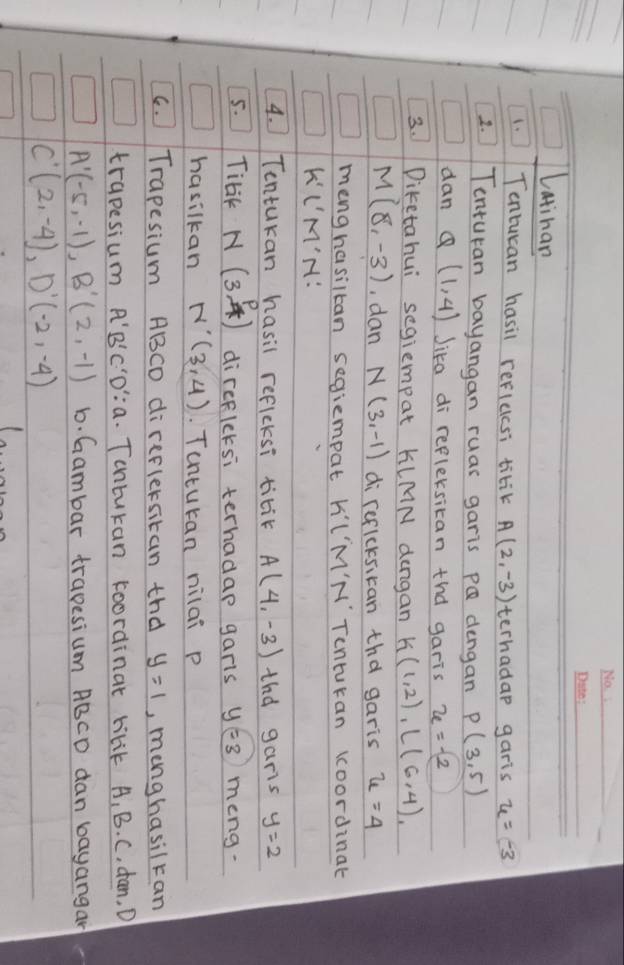 No.:
Date:
Latihan
1. Tentukan hasil refleksi titik A(2,-3) terhadap garis x=-3
2. Tentukan bayangan ruas garis PQ dengan P(3,5)
dan Q (1,4) Jika di refleksikan thd garis x=-2
3. Diketahui segiempat KLMN dengan K(1,2), L(6,4),
M(8,-3), dan N(3,-1) direfleksikan thd garis x=4
menghasilkan segiempat K'L'M'N' Tentukan koordinat
K'L'M'N'
4. Tentukan hasil refleksi titik A(4,-3) thd garis y=2
5. Titik N (3,P) direfleksi terhadap garis y=3 meng-
hasilkan N'(3,4). Tentukan nilai p
6. Trapesium ABCD di refleksikan thd y=1, menghasilkan
trapesium A'B'C'D': a. Tentukan koordinat titik A, B. C, dan, D
A'(-5,-1), B'(2,-1) b. Gambar trapesium ABCD dan bayangan
C'(2,-4), D'(-2,-4)